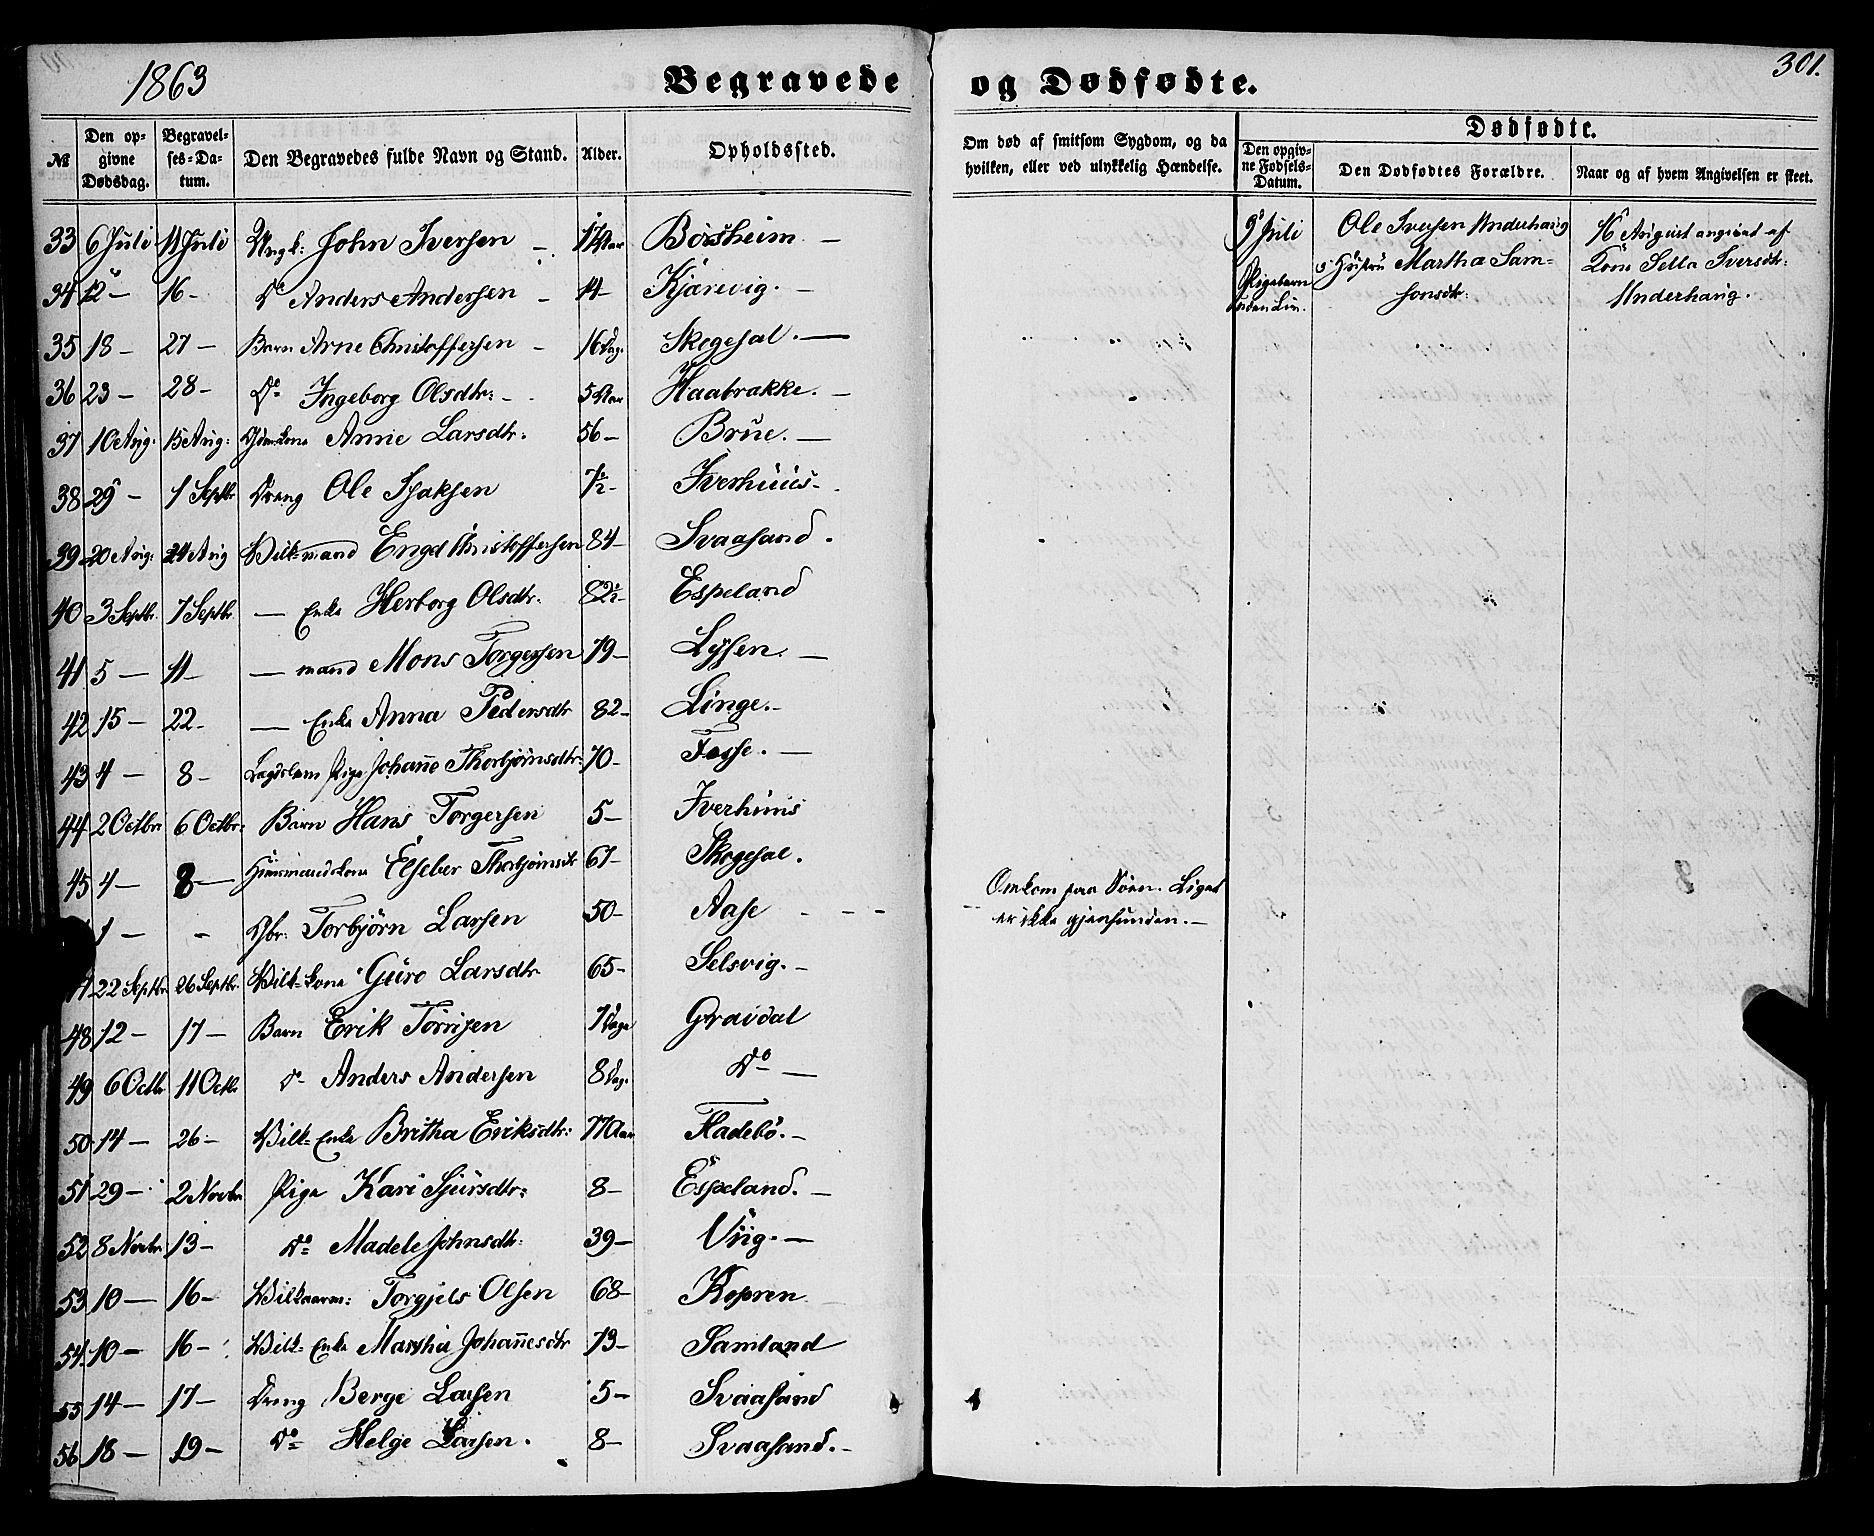 1863 Begravede og Dødfødte. 301.
№ Den opgivne Dødsdag. Begravelses-Datum. Den Begravedes fulde Navn og Stand. Alder. Opholdssted. Om død af smitsom Sygdom, og da hvilken, eller ved ulykkelig Hændelse. Dødfødte. Den opgivne Fødsels-Datum. Den Dødfødtes Forældre. Naar og af hvem Angivelsen er skeet.
33 6 Juli 11 Juli Ungk: John Iversen Børsheim.
34 12 - 16 - Do Anders Andersen - 14 - Kjærevig. -
35 18 - 27 - Barn Arne Christoffersen - 16 Dag. Skogesal. -
36 23 - 28 - Do Ingeborg Olsdtr: - 5 Aar Haabrakke. -
37 10 Aug: 15 Aug: Gdm.kone Anne Larsdtr. 56 - Brue. -
38 29 - 1 Septbr Dreng Ole Isaksen 7½ - Iverhuus -
39 20 Aug: 24 Aug Vilk=mand Engel Christoffersen 84 - Svaasand.
40 3 Septbr. 7 Septbr. — Enke Herborg Olsdtr. 82½ - Espeland
41 5 — 11 - — mand Mons Torgersen 79 - Lysen. -
42 15 - 22 - — Enke Anna Pedersdtr 82 - Linge. -
43 4 - 8 - Lægdslem Pige Johanne Thorbjørnsdtr: 70 - Fosse. -
44 2 Octbr 6 Octbr: Barn Hans Torgersen 5 - Iverhuus
45 4 - 8 - Huusmandskone Elseber Thorbjørnsdtr 67 - Skogesal.
1 - - Gbr: Torbjørn Larsen 50 - Aase - - - Omkom paa Søen. Liget
er ikke gjenfunden. -
22 Septbr. 26 Septbr. Vilk-kone Guro Larsdtr. 65 - Selsvig. -
48 12 - 17 - Barn Erik Tørrisen 7 Dage Gravdal
49 6 Octbr 11 Octbr. Do Anders Andersen 8 Dag. Do -
50 14 - 26 - Vilk-Enke Britha Eriksdtr: 77 Aar Fladebø. -
51 29 - 2 Novbr Pige Kari Sjursdtr: 8 - Espeland. -
52 8 Novbr. 13 - Do Madele Johnsdtr. 39 - Viig. -
53 10 - 16 - Vilkaarm: Torgjels Olsen 68 - Kopren
54. 10 - 16 - Vilk- Enke Martha Johannesdtr 73 - Samland
55 14 - 17 - Dreng Berge Larsen 5 - Svaasand
56 18 - 19 - Do Helge Larsen. 8 - Svaasand. -
9 Juli
Pigebarn
uden Liv.
Ole Iversen Underhaug
o: Hustru Martha Sam=
sonsdtr:
16 August angivet af
Kone Sella Iversdtr:
Underhaug.